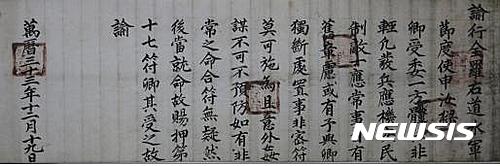 諭行全羅右道水軍
節度使申汝樑
卿受委一方體任非
輕凡發兵應機安民
制敵一應常事自有
舊章慮或有予與卿
獨斷處置事非密符
莫可施爲且意外姦
謀不可不預防如有非
常之命合符無疑然
後當就命故賜押第
十七符卿其受之故
諭
萬曆三十三年十二月十九日
NEWSIS